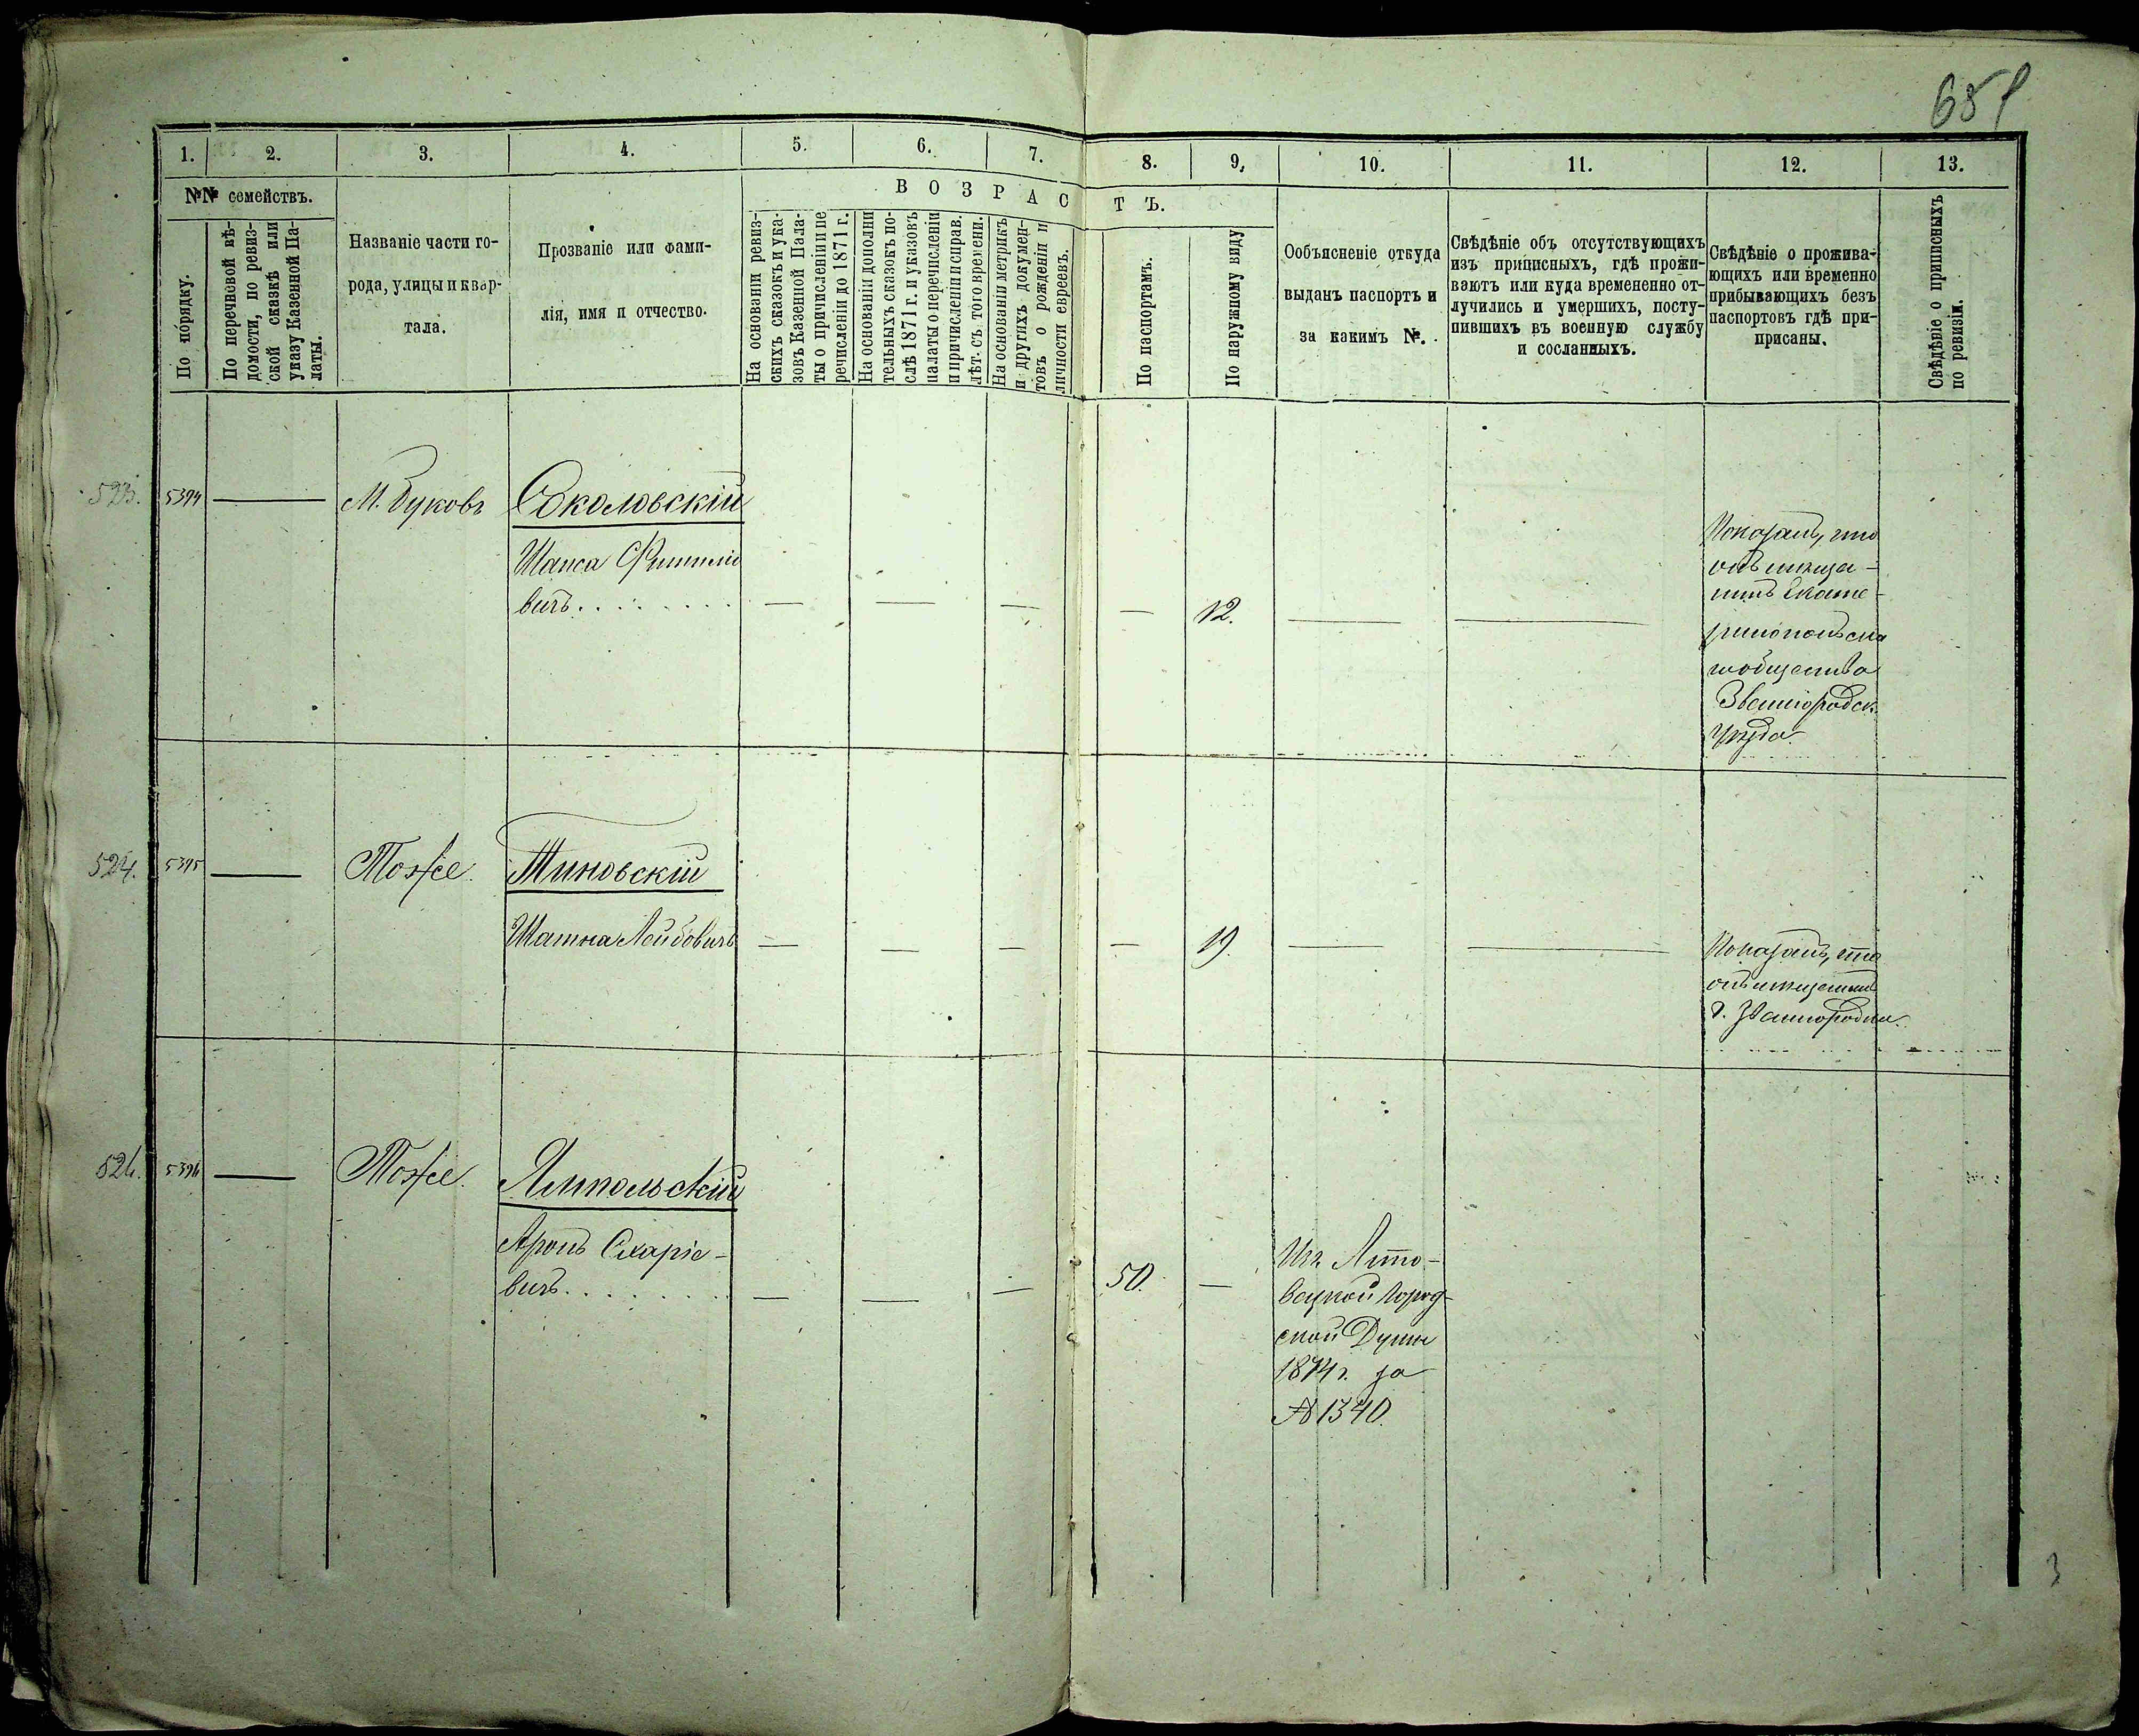 1.
2.
3.
4.
5.
6.
7.
8.
9.
10.
11.
12.
13.
№№ семействъ.
ВОЗРАСТЪ.
По порядку.
По перечневой вѣ-
домости, по ревиз-
ской сказкѣ или
указу Казенной Па-
латы.
Названіе части го-
рода, улицы и квар-
тала.
Прозваніе или фами-
лія, имя и отчество.
На основаніи ревиз-
скихъ сказокъ и ука-
зовъ Казенной Пала-
ты о причисленіи и пе
речисленіи до 1871 г.
На основаніи дополни
тельныхъ сказокъ по-
слѣ 1871 г. и указовъ
палаты о перечисленіи
и причисленіи исправ.
лѣт. съ того времени.
На основаніи метрикъ
и другихъ докумен-
товъ о рожденіи и
личности евреевъ.
По паспортамъ.
По наружному виду
Ообъясненіе откуда
выданъ паспортъ и
за какимъ №.
Свѣдѣніе объ отсутствующихъ
изъ приписныхъ, гдѣ прожи-
ваютъ или куда времененно от-
лучились и умершихъ, посту-
пившихъ въ военную службу
и сосланныхъ.
Свѣдѣніе о прожива-
ющихъ или временно
прибывающихъ безъ
паспортовъ гдѣ при-
присаны.
Свѣдѣніе о приписныхъ
по ревизіи.
523. 5394 М. Буковъ Соколовскій
Шапса
вичъ
12.
Показалъ, что
онъ мѣща-
нинъ Екате-
ринопольска
гообщества
Звенигородск.
уѣзда.
524. 5395 Тоже. Тиновскій
Лейбовичъ
19.
Показалъ, что
онъ мѣщанинъ
г. Звенигородки.
5396 Тоже. Ямпольскій
Аронъ
вичъ
50.
Изъ Лито-
вецкой Город-
ской Думы
1874 г. за
№ 1340.